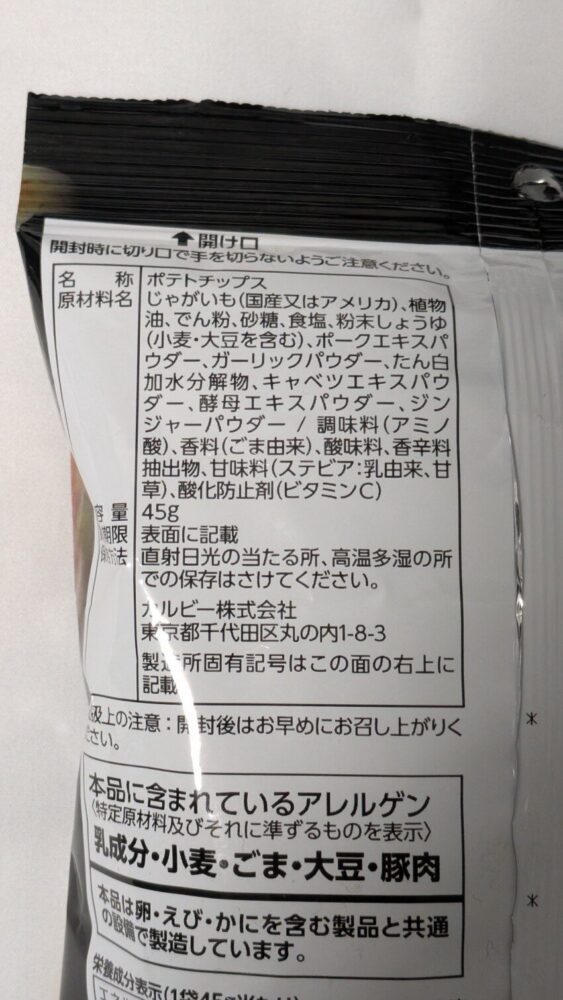 ⬆開け口
開封時に切り口で手を切らないようご注意ください。
名 称 ポテトチップス
原材料名 じゃがいも(国産又はアメリカ)、植物
油、でん粉、砂糖、食塩、粉末しょうゆ
(小麦・大豆を含む)、ポークエキスパ
ウダー、ガーリックパウダー、たん白
加水分解物、キャベツエキスパウ
ダー、酵母エキスパウダー、ジン
ジャーパウダー / 調味料(アミノ
酸)、香料(ごま由来)、酸味料、香辛料
抽出物、甘味料(ステビア:乳由来、甘
草)、酸化防止剤(ビタミンC)
容 量 45g
期限 表面に記載
方法 直射日光の当たる所、高温多湿の所
での保存はさけてください。
カルビー株式会社
東京都千代田区丸の内1-8-3
製造所固有記号はこの面の右上に
記載
及上の注意:開封後はお早めにお召し上がりく
ださい。
本品に含まれているアレルゲン
〈特定原材料及びそれに準ずるものを表示〉
乳成分・小麦・ごま・大豆・豚肉
本品は卵・えび・かにを含む製品と共通
の設備で製造しています。
栄養成分表示(1袋45g当たり)